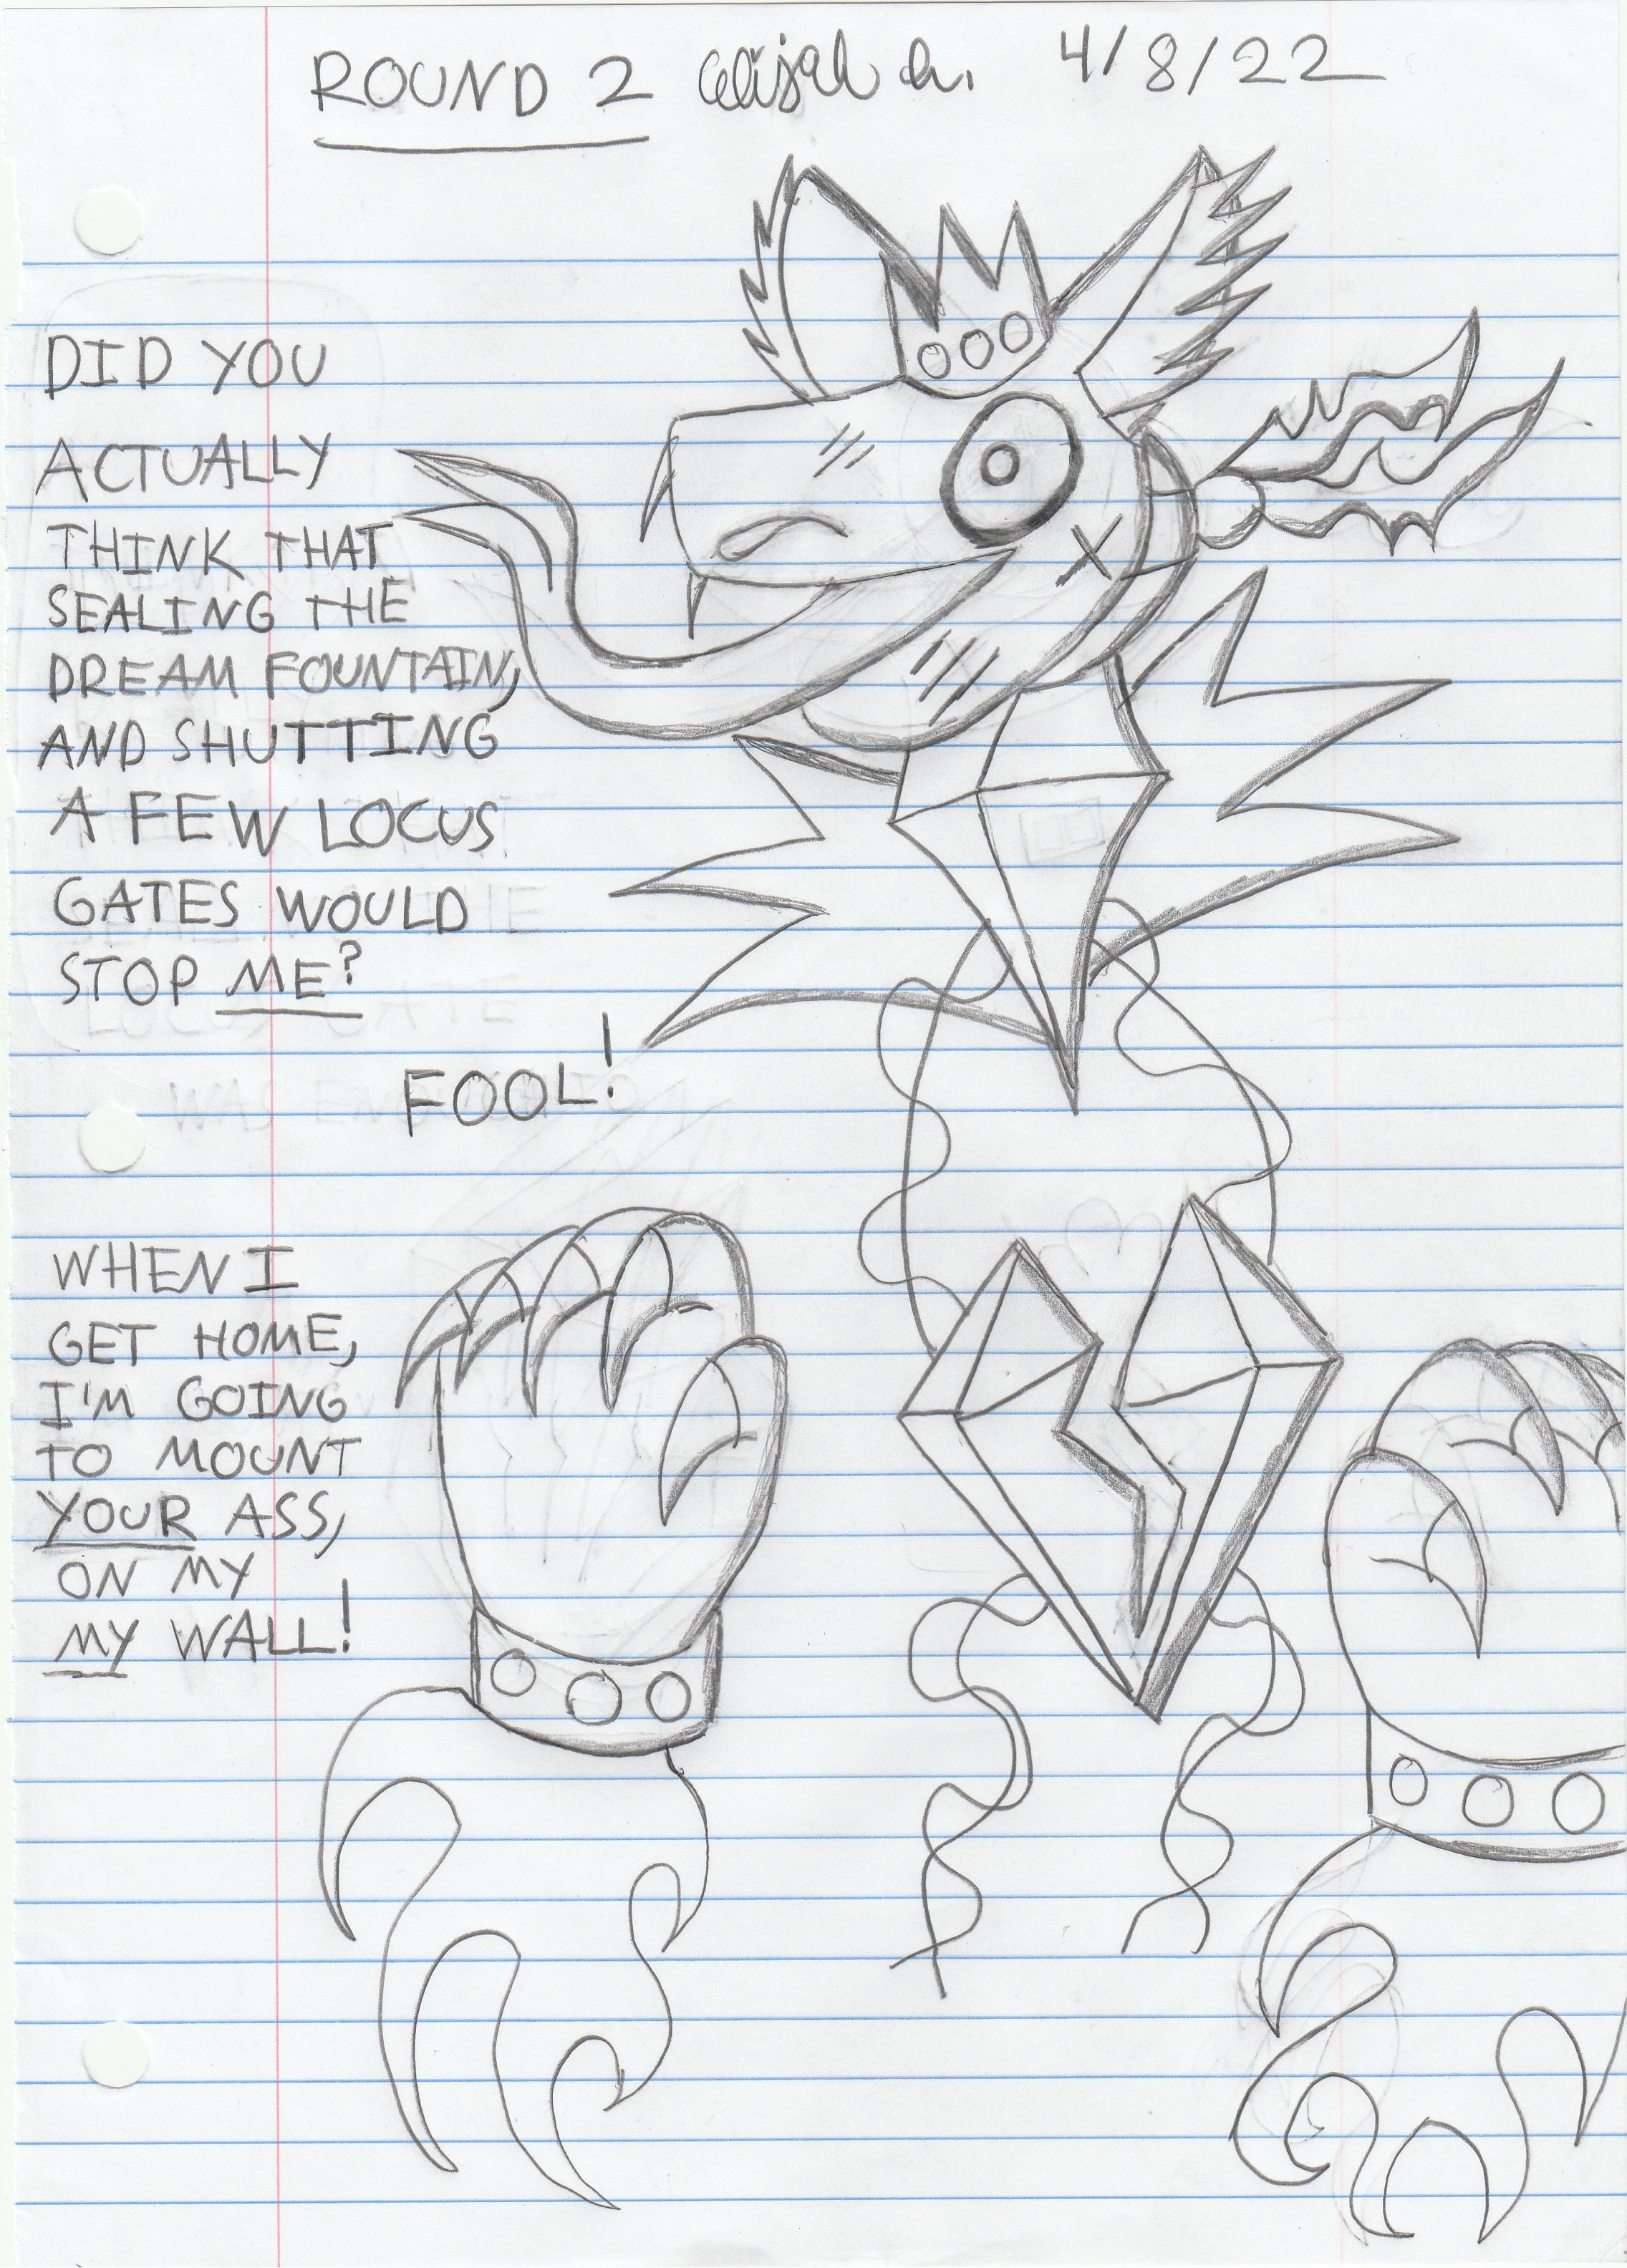 ROUND 2 4/8/22
DID YOU
ACTUALLY
THINK THAT
SEALING THE
DREAM FOUNTAIN,
AND SHUTTING
A FEW LOCUS
GATES WOULD
STOP ME?
FOOL!
WHEN I
GET HOME,
I'M GOING
TO MOUNT
YOUR ASS,
ON MY
MY WALL!